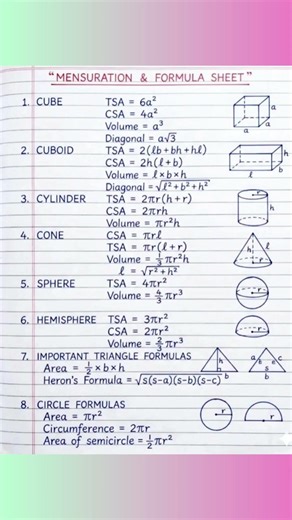 "MENSURATION & FORMULA SHEET"
1. CUBE TSA = 6a²
CSA = 4a²
Volume = a³
Diagonal = a√3
a
a
a
2. CUBOID TSA = 2(lb+bh+hl)
CSA = 2h(l+b)
Volume = l×b×h
Diagonal = √l²+b²+h²
h
l
b
3. CYLINDER TSA = 2πr(h+r)
CSA = 2πrh
Volume = πr²h
r
h
4. CONE CSA = πrl
TSA = πr(l+r)
Volume = 1/3 πr²h
l = √r²+h²
h
l
r
5. SPHERE TSA = 4πr²
Volume = 4/3 πr³
r
6. HEMISPHERE TSA = 3πr²
CSA = 2πr²
Volume = 2/3 πr³
r
7. IMPORTANT TRIANGLE FORMULAS
Area = 1/2 × b × h
Heron's Formula = √s(s-a)(s-b)(s-c)
h
b
a
s
s
c
s
b
8. CIRCLE FORMULAS
Area = πr²
Circumference = 2πr
Area of semicircle = 1/2 πr²
r
r